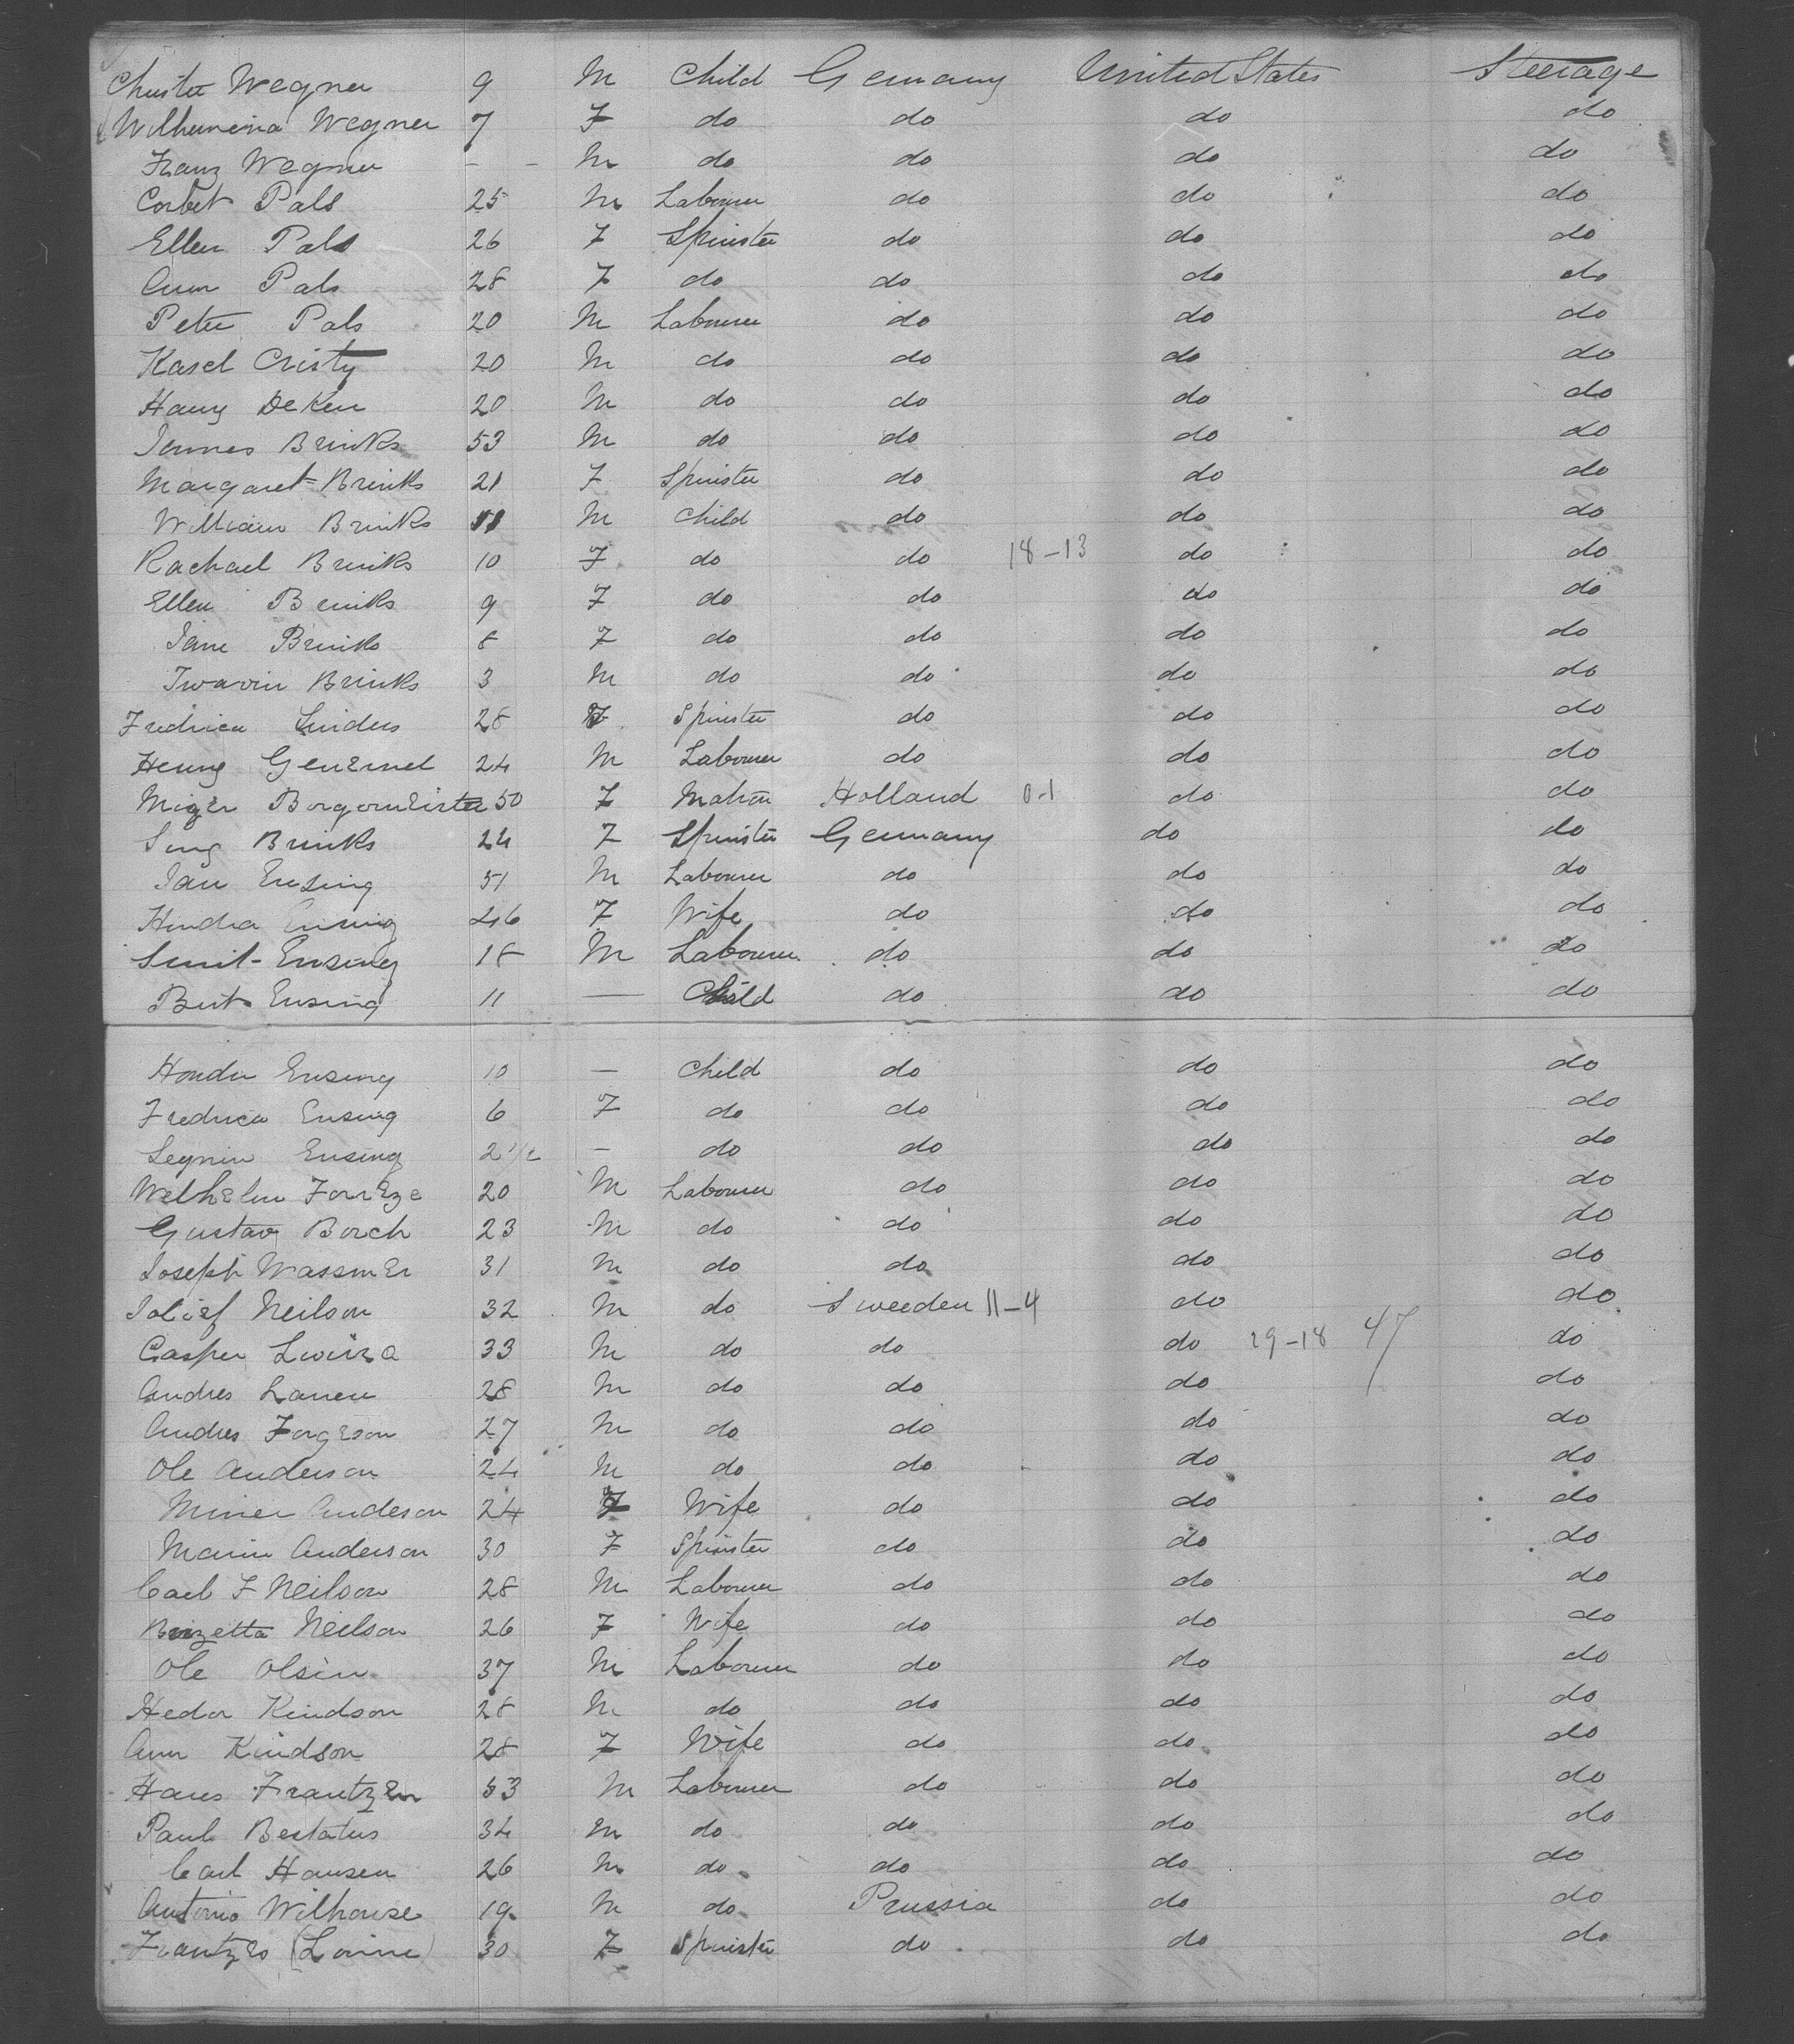 Christer Wegner 9 M Child Germany United States Steerage
Wilhemeina Wegner 7 F do do do do
Franz Wegner - - M do do do do
Corbet Pals 25 M Labourer do do do
Ellen Pals 26 F Spinster do do do
Ann Pals 28 F do do do do
Peter Pals 20 M Labourer do do do
Kasel Cristy 20 M do do do do
Harry DeKen 20 M do do do do
Jannes Brinks 53 M do do do do
Margaret Brinks 21 F Spinster do do do
William Brinks 11 M Child do do do
Rachael Brinks 10 F do do 18-13 do do
Ellen Brinks 9 F do do do do
Jane Brinks 8 F do do do do
Brinks 3 M do do do do
Fredrica 28 F Spinster do do do
Henry 24 M Labourer do do do
Borgomeister 50 F Matron Holland 0-1 do do
Brinks 24 F Spinster Germany do do
Jan Ensing 51 M Labourer do do do
Hindra Ensing 46 F Wife do do do
Ensing 18 M Labourer do do do
Bert Ensing 11 — Child do do do
Ensing 10 — Child do do do
Fredrica Ensing 6 F do do do do
Ensing 2 1/2 - do do do do
Welhelm 20 M Labourer do do do
Gustav Borch 23 M do do do do
Joseph Wassmer 31 M do do do do
Neilson 32 M do Sweeden 11-4 do do
Casper 33 M do do do 29-18 47 do
Andres Lanen 28 M do do do do
Andres Forgeson 27 M do do do do
Ole Anderson 24 M do do do do
Miner Andeson 24 F Wife do do do
Marin Anderson 30 F Spinster do do do
Carl F Neilson 28 M Labourer do do do
Neilson 26 F Wife do do do
Ole Olsin 37 M Labourer do do do
Hedor Kindson 28 M do do do do
Ann Kindson 28 F Wife do do do
Hans Frantzen 53 M Labourer do do do
Paul Bestatus 34 M do do do do
Carl Hansen 26 M do do do do
Antonio Wilhouse 19 M do Prussia do do
(Lovine) 30 F Spinster do do do